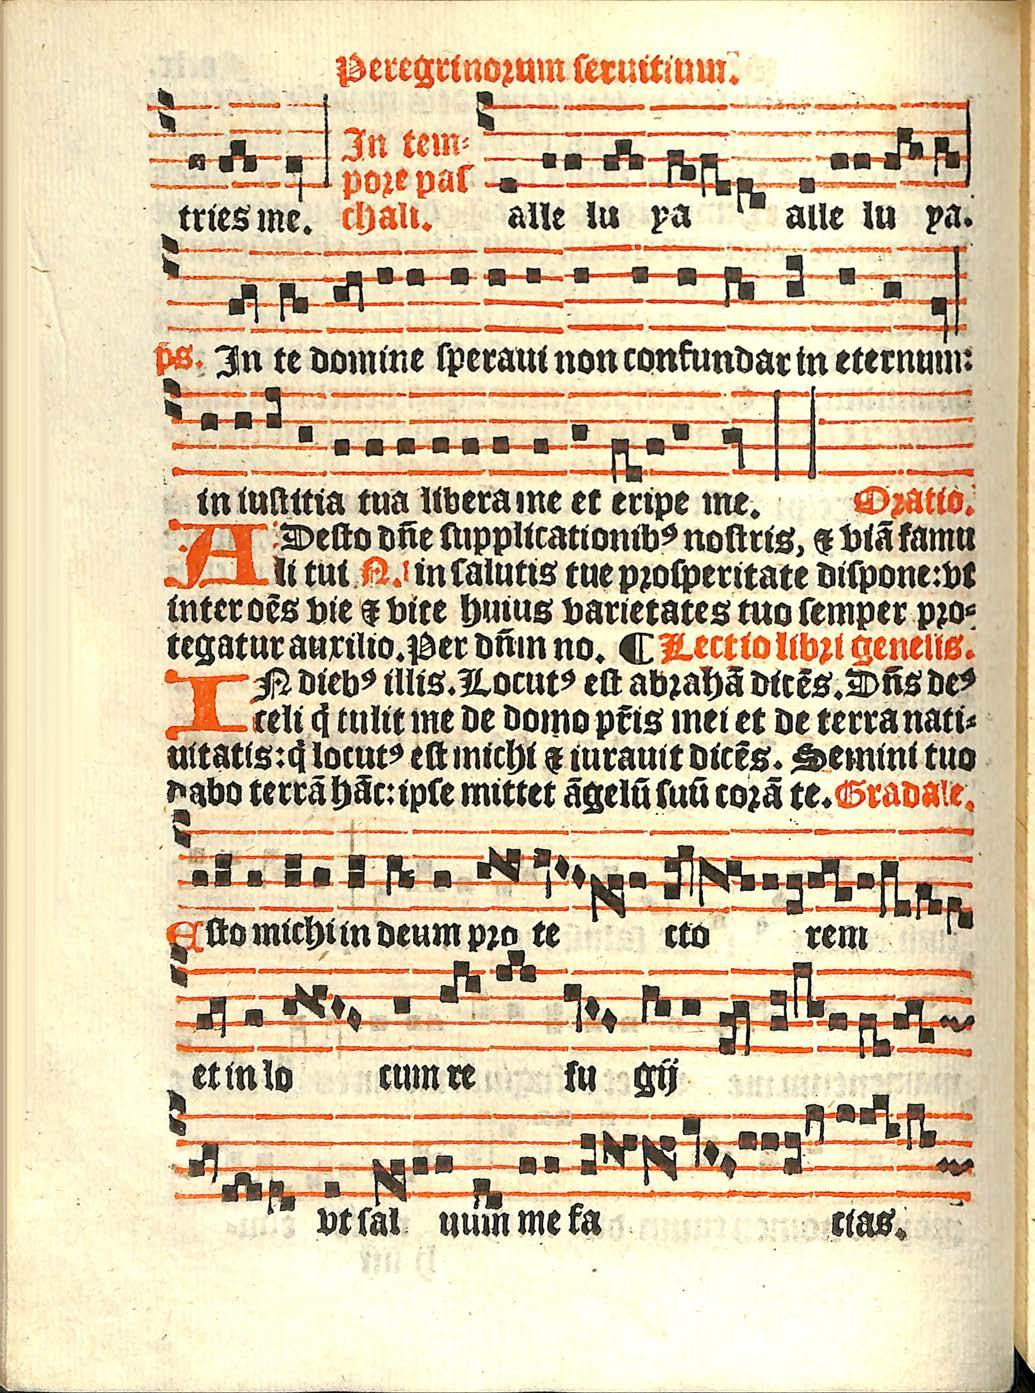 Peregrinorum seruitium.
In tem-
pore pas
chali.
tries me. alle lu ya alle lu ya.
ps. In te domine speraui non confundar in eternum:
in iustitia tua libera me et eripe me. Oratio.
ADesto dñe supplicationibꝰ nostris, ⁊ viā famu
li tui N. in salutis tue prosperitate dispone: vt
inter oēs vie ⁊ vite huius varietates tuo semper pro-
tegatur auxilio. Per dñm no. ¶ Lectio libri genesis.
IN diebꝰ illis. Locutꝰ est abrahā dicēs. Dñs deꝰ
celi q̄ tulit me de domo pr̄is mei et de terra nati-
uitatis: q̄ locutꝰ est michi ⁊ iurauit dicēs. Semini tuo
dabo terrā hāc: ipse mittet āgelū suū corā te. Gradale.
Esto michi in deum pro te cto rem
et in lo cum re fu gij
vt sal uum me fa cias.